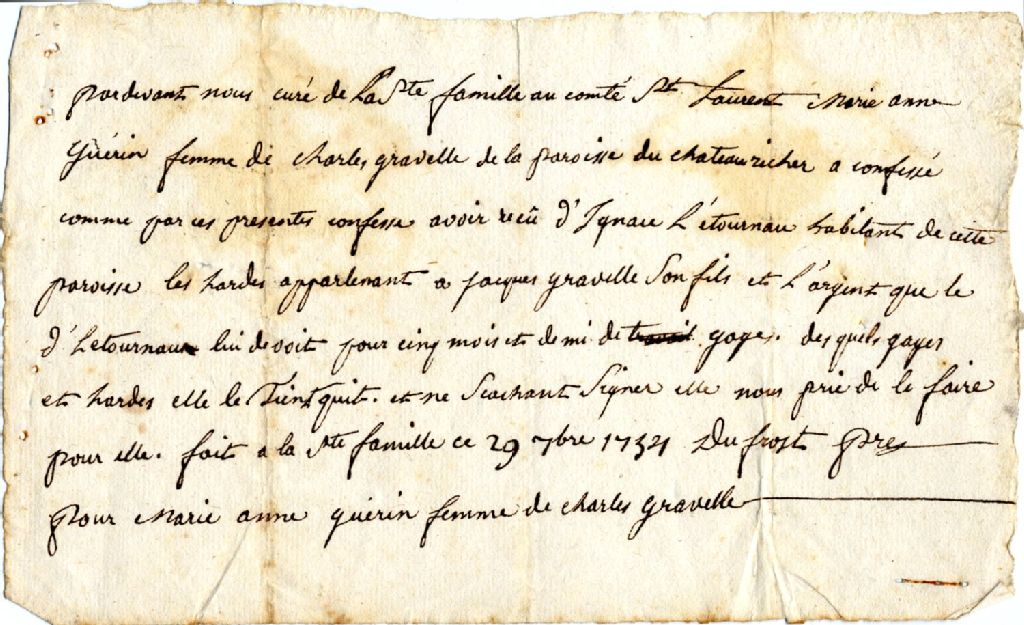 pardevant nous curé de La Ste famille au comté St Laurent Marie anne
Guérin femme de charles gravelle de la paroisse du chateauricher a confessé
comme par ces presentes confesse avoir recû d'Ignace L'étournau habitant de cette
paroisse les hardes appartenant a jacques gravelle Son fils et L'argent que le
d' Letournau lui devoit pour cinq mois et demi de travail gages. desquels gages
et hardes elle le Tient quit. et ne Scachant Signer elle nous prie de le faire
pour elle. fait a la Ste famille ce 29 7bre Dufrost ptre
pour Marie anne guérin femme de charles gravelle